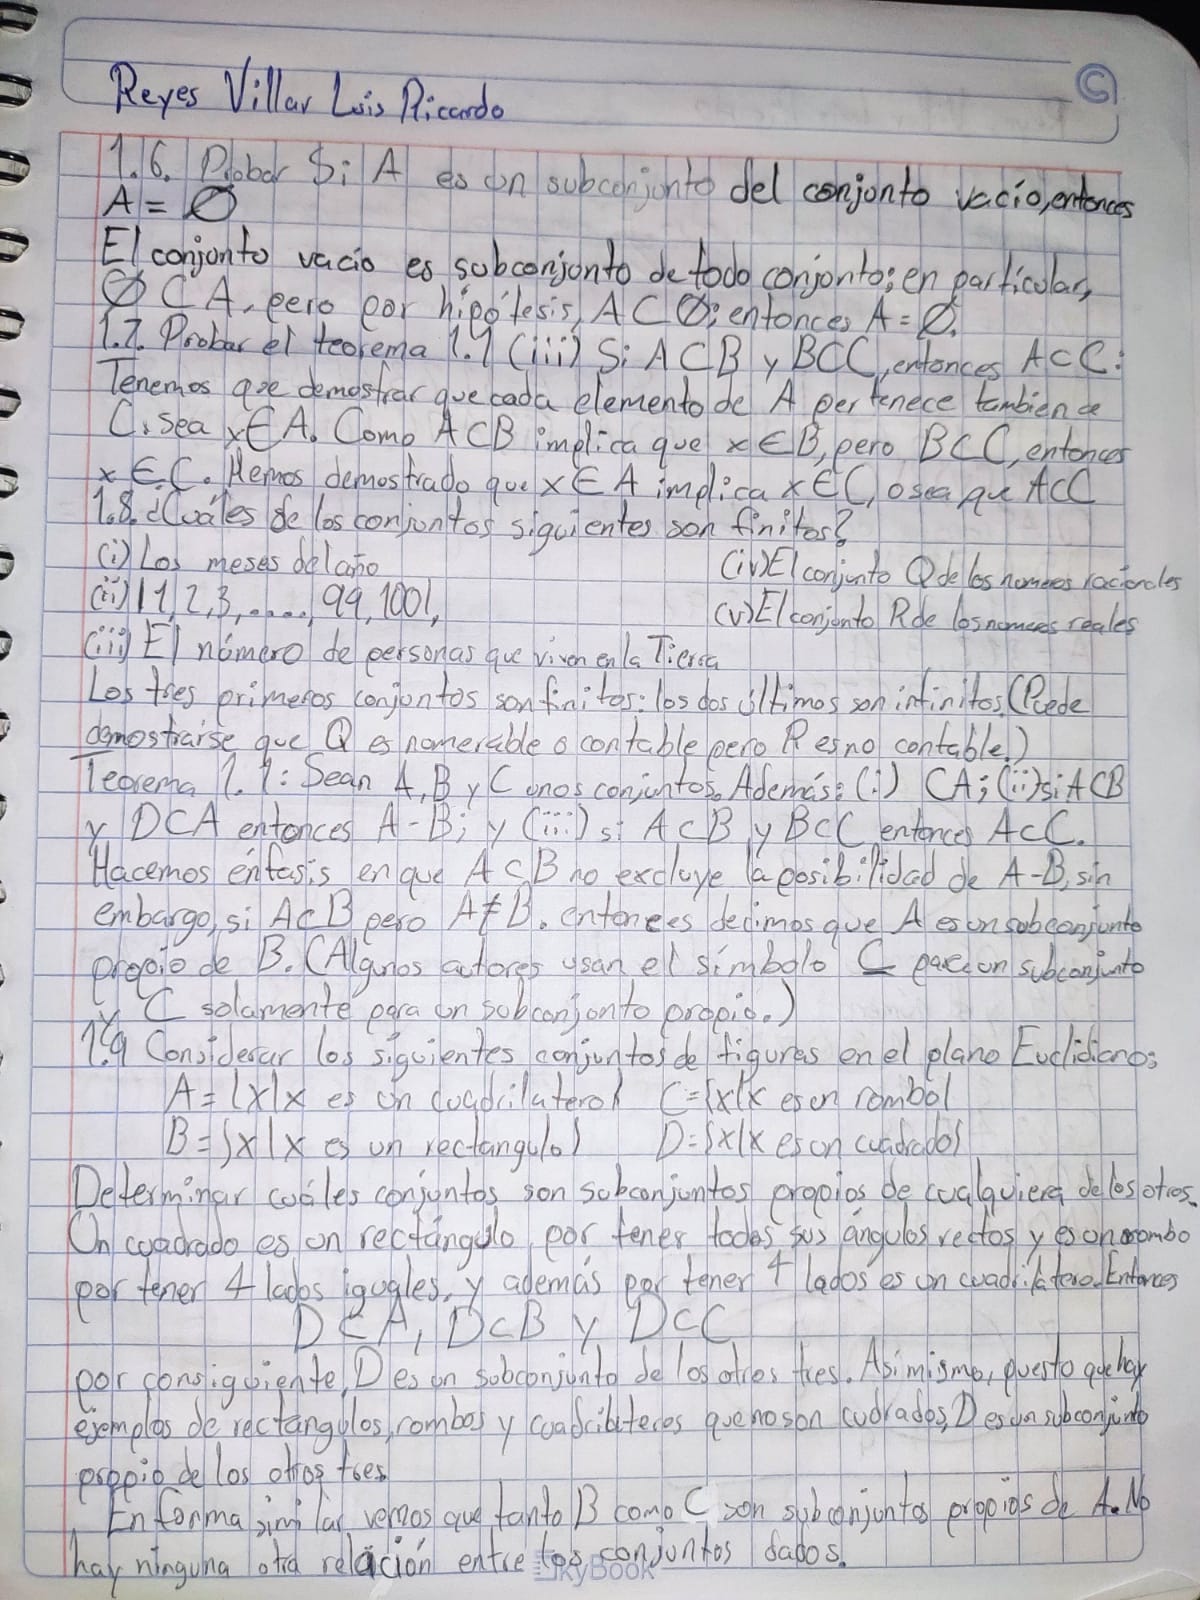 Reyes Villar Luis Riccardo
1.6. Probar Si A es un subconjunto del conjunto vacío, entonces
A = Ø
El conjunto vacío es subconjunto de todo conjunto; en particular,
Ø ⊂ A, pero por hipótesis, A ⊂ Ø; entonces A = Ø.
1.7. Probar el teorema 1.1 (iii) Si A⊂B y B⊂C, entonces A⊂C:
Tenemos que demostrar que cada elemento de A pertenece tambien a
C, sea x∈A. Como A⊂B implica que x∈B, pero B⊂C, entonces
x∈C. Hemos demostrado que x∈A implica x∈C, o sea que A⊂C
1.8. ¿Cuáles de los conjuntos siguientes son finitos?
(i) Los meses del año
(iv) El conjunto Q de los numeros racionales
(ii) {1, 2, 3, ....., 99, 100},
(v) El conjunto R de los numeros reales
(iii) El número de personas que viven en la Tierra
Los tres primeros conjuntos son finitos: los dos últimos son infinitos. (Puede
demostrarse que Q es numerable o contable pero R es no contable.)
Teorema 1.1: Sean A, B y C unos conjuntos. Además: (i) CA; (ii) si A⊂B
y D⊂A entonces A-B; y (iii) si A⊂B y B⊂C entonces A⊂C.
Hacemos énfasis en que A⊂B no excluye la posibilidad de A-B, sin
embargo, si A⊂B pero A≠B. entonces decimos que A es un subconjunto
propio de B. (Algunos autores usan el símbolo ⊆ para un subconjunto
y ⊂ solamente para un subconjunto propio.)
1.9 Considerar los siguientes conjuntos de figuras en el plano Euclidiano:
A = {x|x es un cuadrilatero} C={x|x es un rombo}
B = {x|x es un rectangulo} D={x|x es un cuadrado}
Determinar cuáles conjuntos son subconjuntos propios de cualquiera de los otros.
Un cuadrado es un rectángulo por tener todos sus ángulos rectos y es un rombo
por tener 4 lados iguales, y además por tener 4 lados es un cuadrilatero. Entonces
D⊂A, D⊂B y D⊂C
por consiguiente, D es un subconjunto de los otros tres. Asimismo, puesto que hay
ejemplos de rectangulos, rombos y cuadrilateros que no son cudrados, D es un subconjunto
propio de los otros tres
En forma similar, vemos que tanto B como C son subconjuntos propios de A. No
hay ninguna otra relación entre los conjuntos dados.
SkyBook